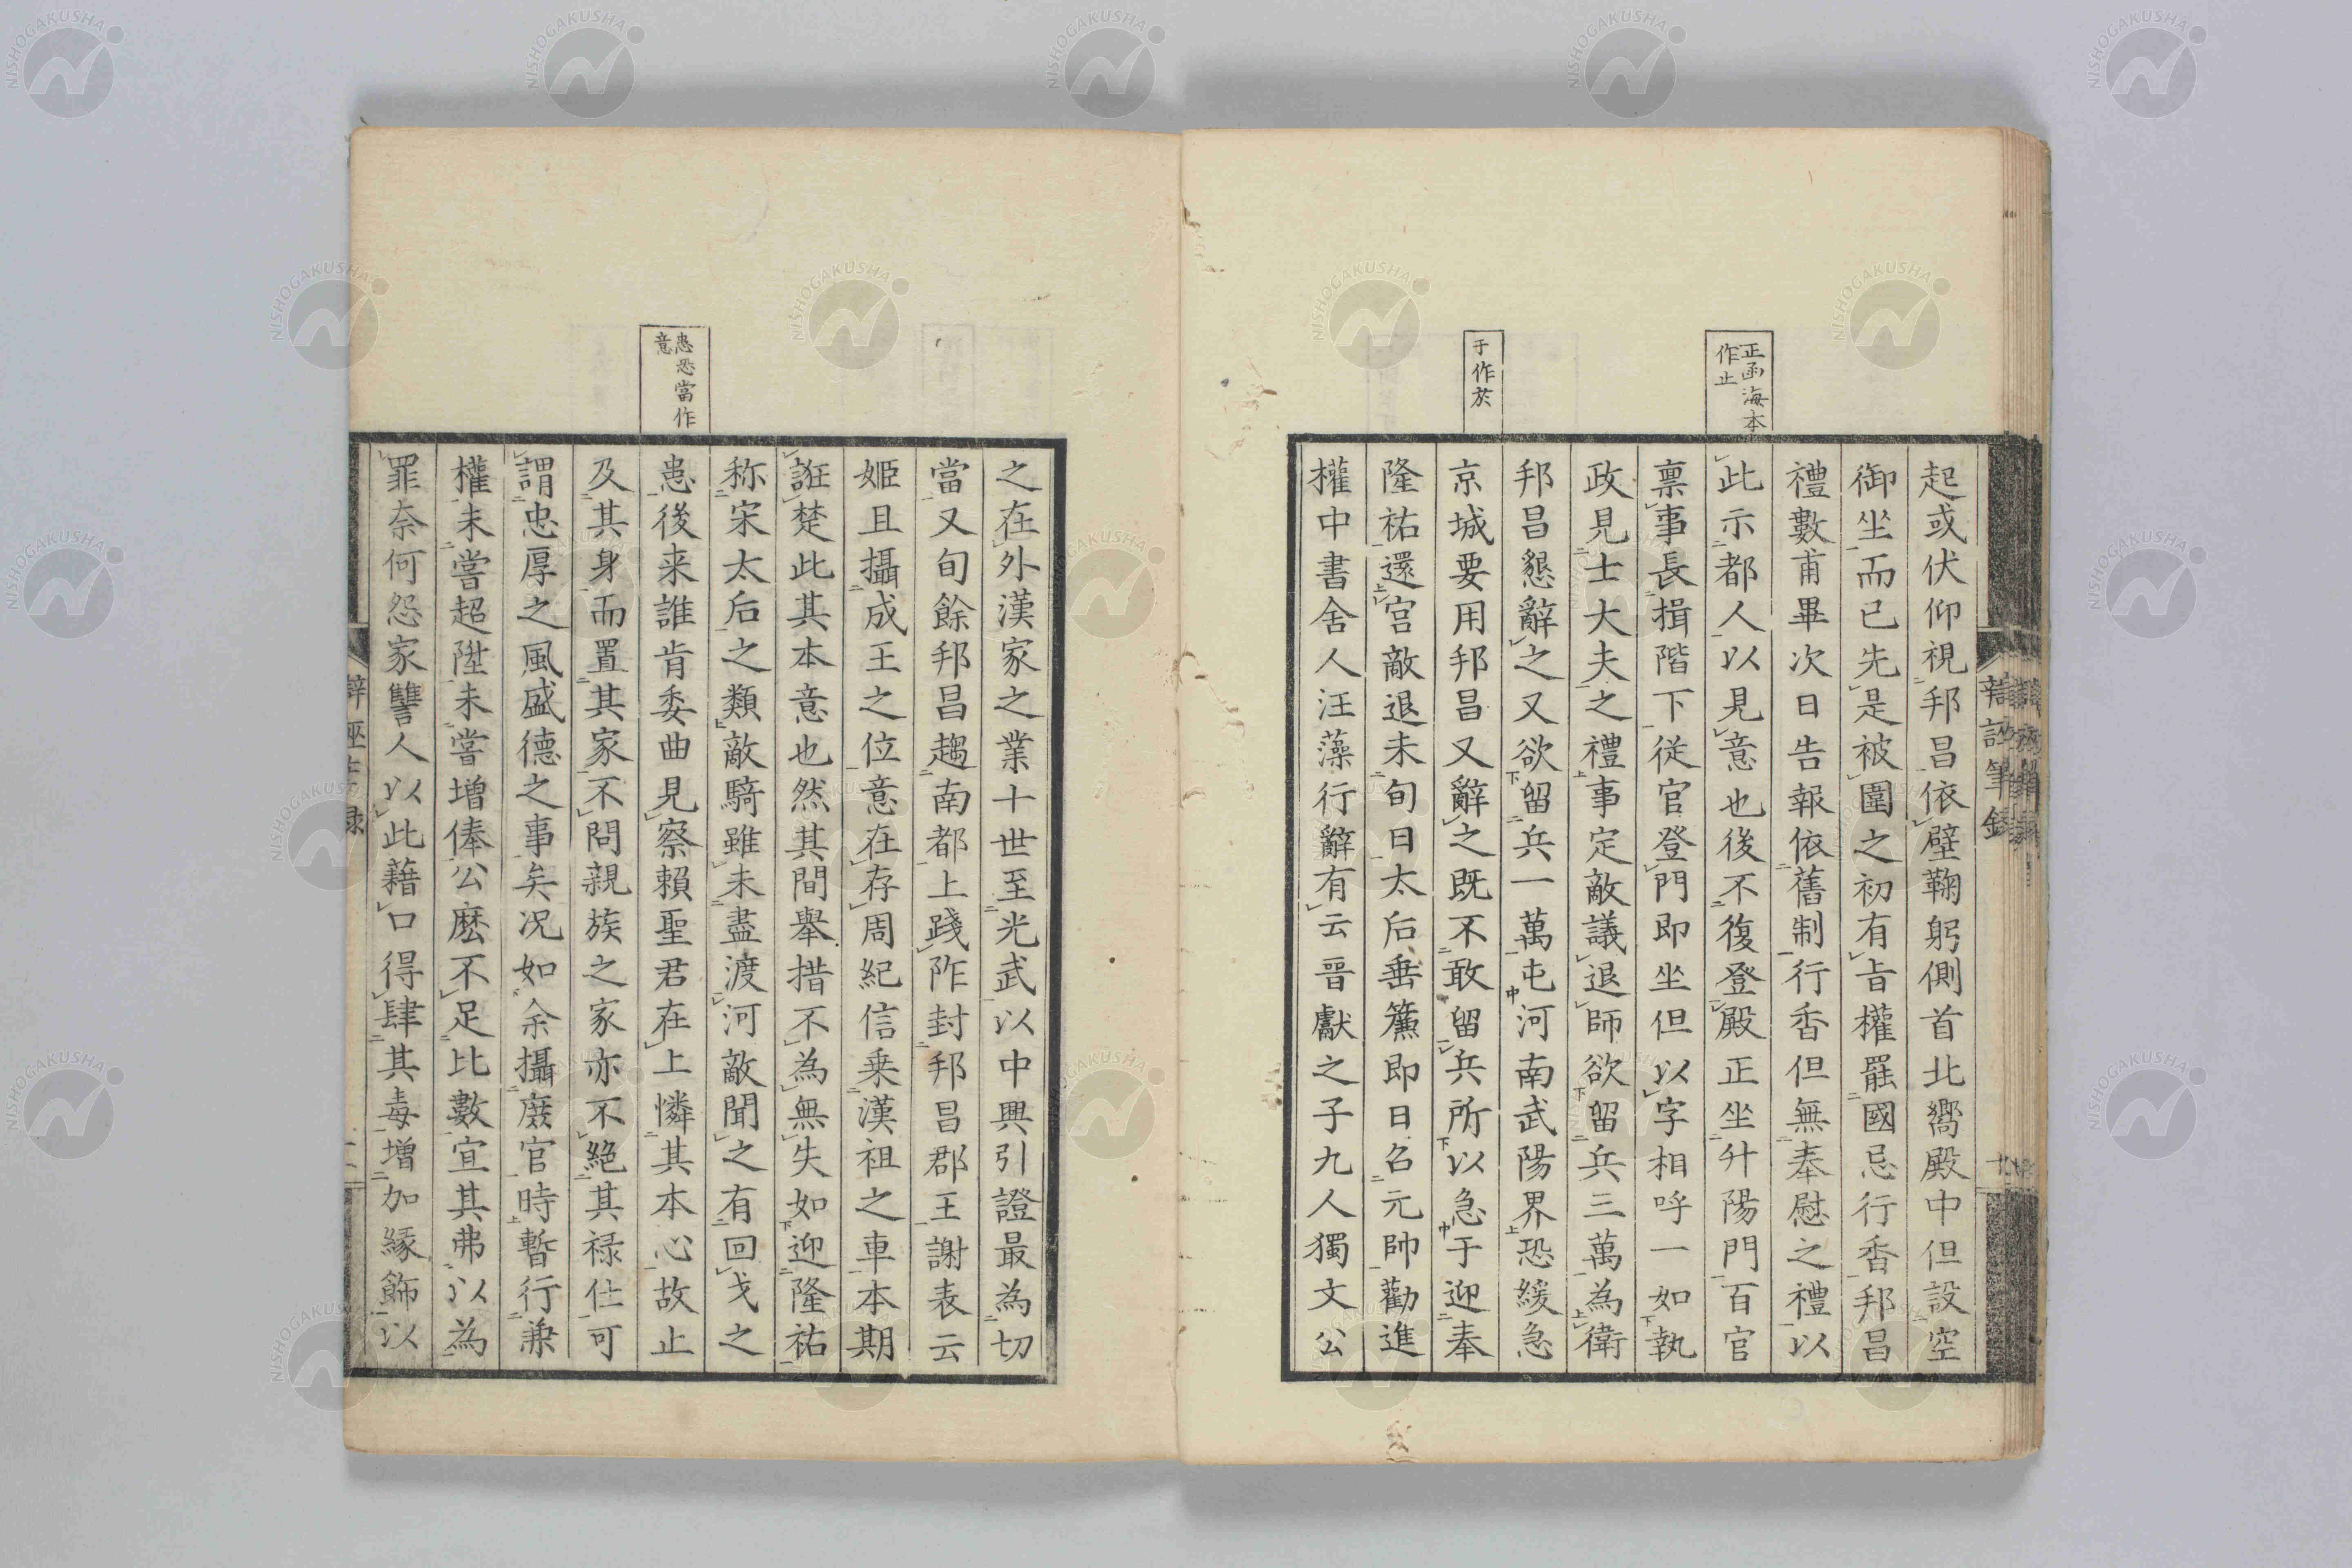 起或伏仰視邦昌依壁鞠躬側首北嚮殿中但設空
御坐而已先是被圍之初有旨權罷國忌行香邦昌
禮數甫畢次日告報依舊制行香但無奉慰之禮以
正函海本
作止
此示都人以見意也後不復登殿正坐升陽門百官
稟事長揖階下從官登門即坐但以字相呼一如執
政見士大夫之禮事定敵議退師欲留兵三萬為衛
邦昌懇辭之又欲留兵一萬屯河南武陽界恐緩急
于作於
京城要用邦昌又辭之既不敢留兵所以急于迎奉
隆祐還宮敵退未旬日太后垂簾即日名元帥勸進
權中書舍人汪藻行辭有云晋獻之子九人獨文公
辯誣筆録
之在外漢家之業十世至光武以中興引證最為切
當又旬餘邦昌趨南都上踐阼封邦昌郡王謝表云
姬且攝成王之位意在存周紀信乗漢祖之車本期
誑楚此其本意也然其間舉措不為無失如迎隆祐
称宋太后之類敵騎雖未盡渡河敵聞之有回戈之
患恐當作
意
患後来誰肯委曲見察賴聖君在上憐其本心故止
及其身而置其家不問親族之家亦不絶其禄仕可
謂忠厚之風盛德之事矣况如余攝廢官時暫行兼
權未嘗超陞未嘗增俸公麽不足比數宜其弗以為
罪奈何怨家讐人以此藉口得肆其毒增加縁飾以
NISHOGAKUSHA